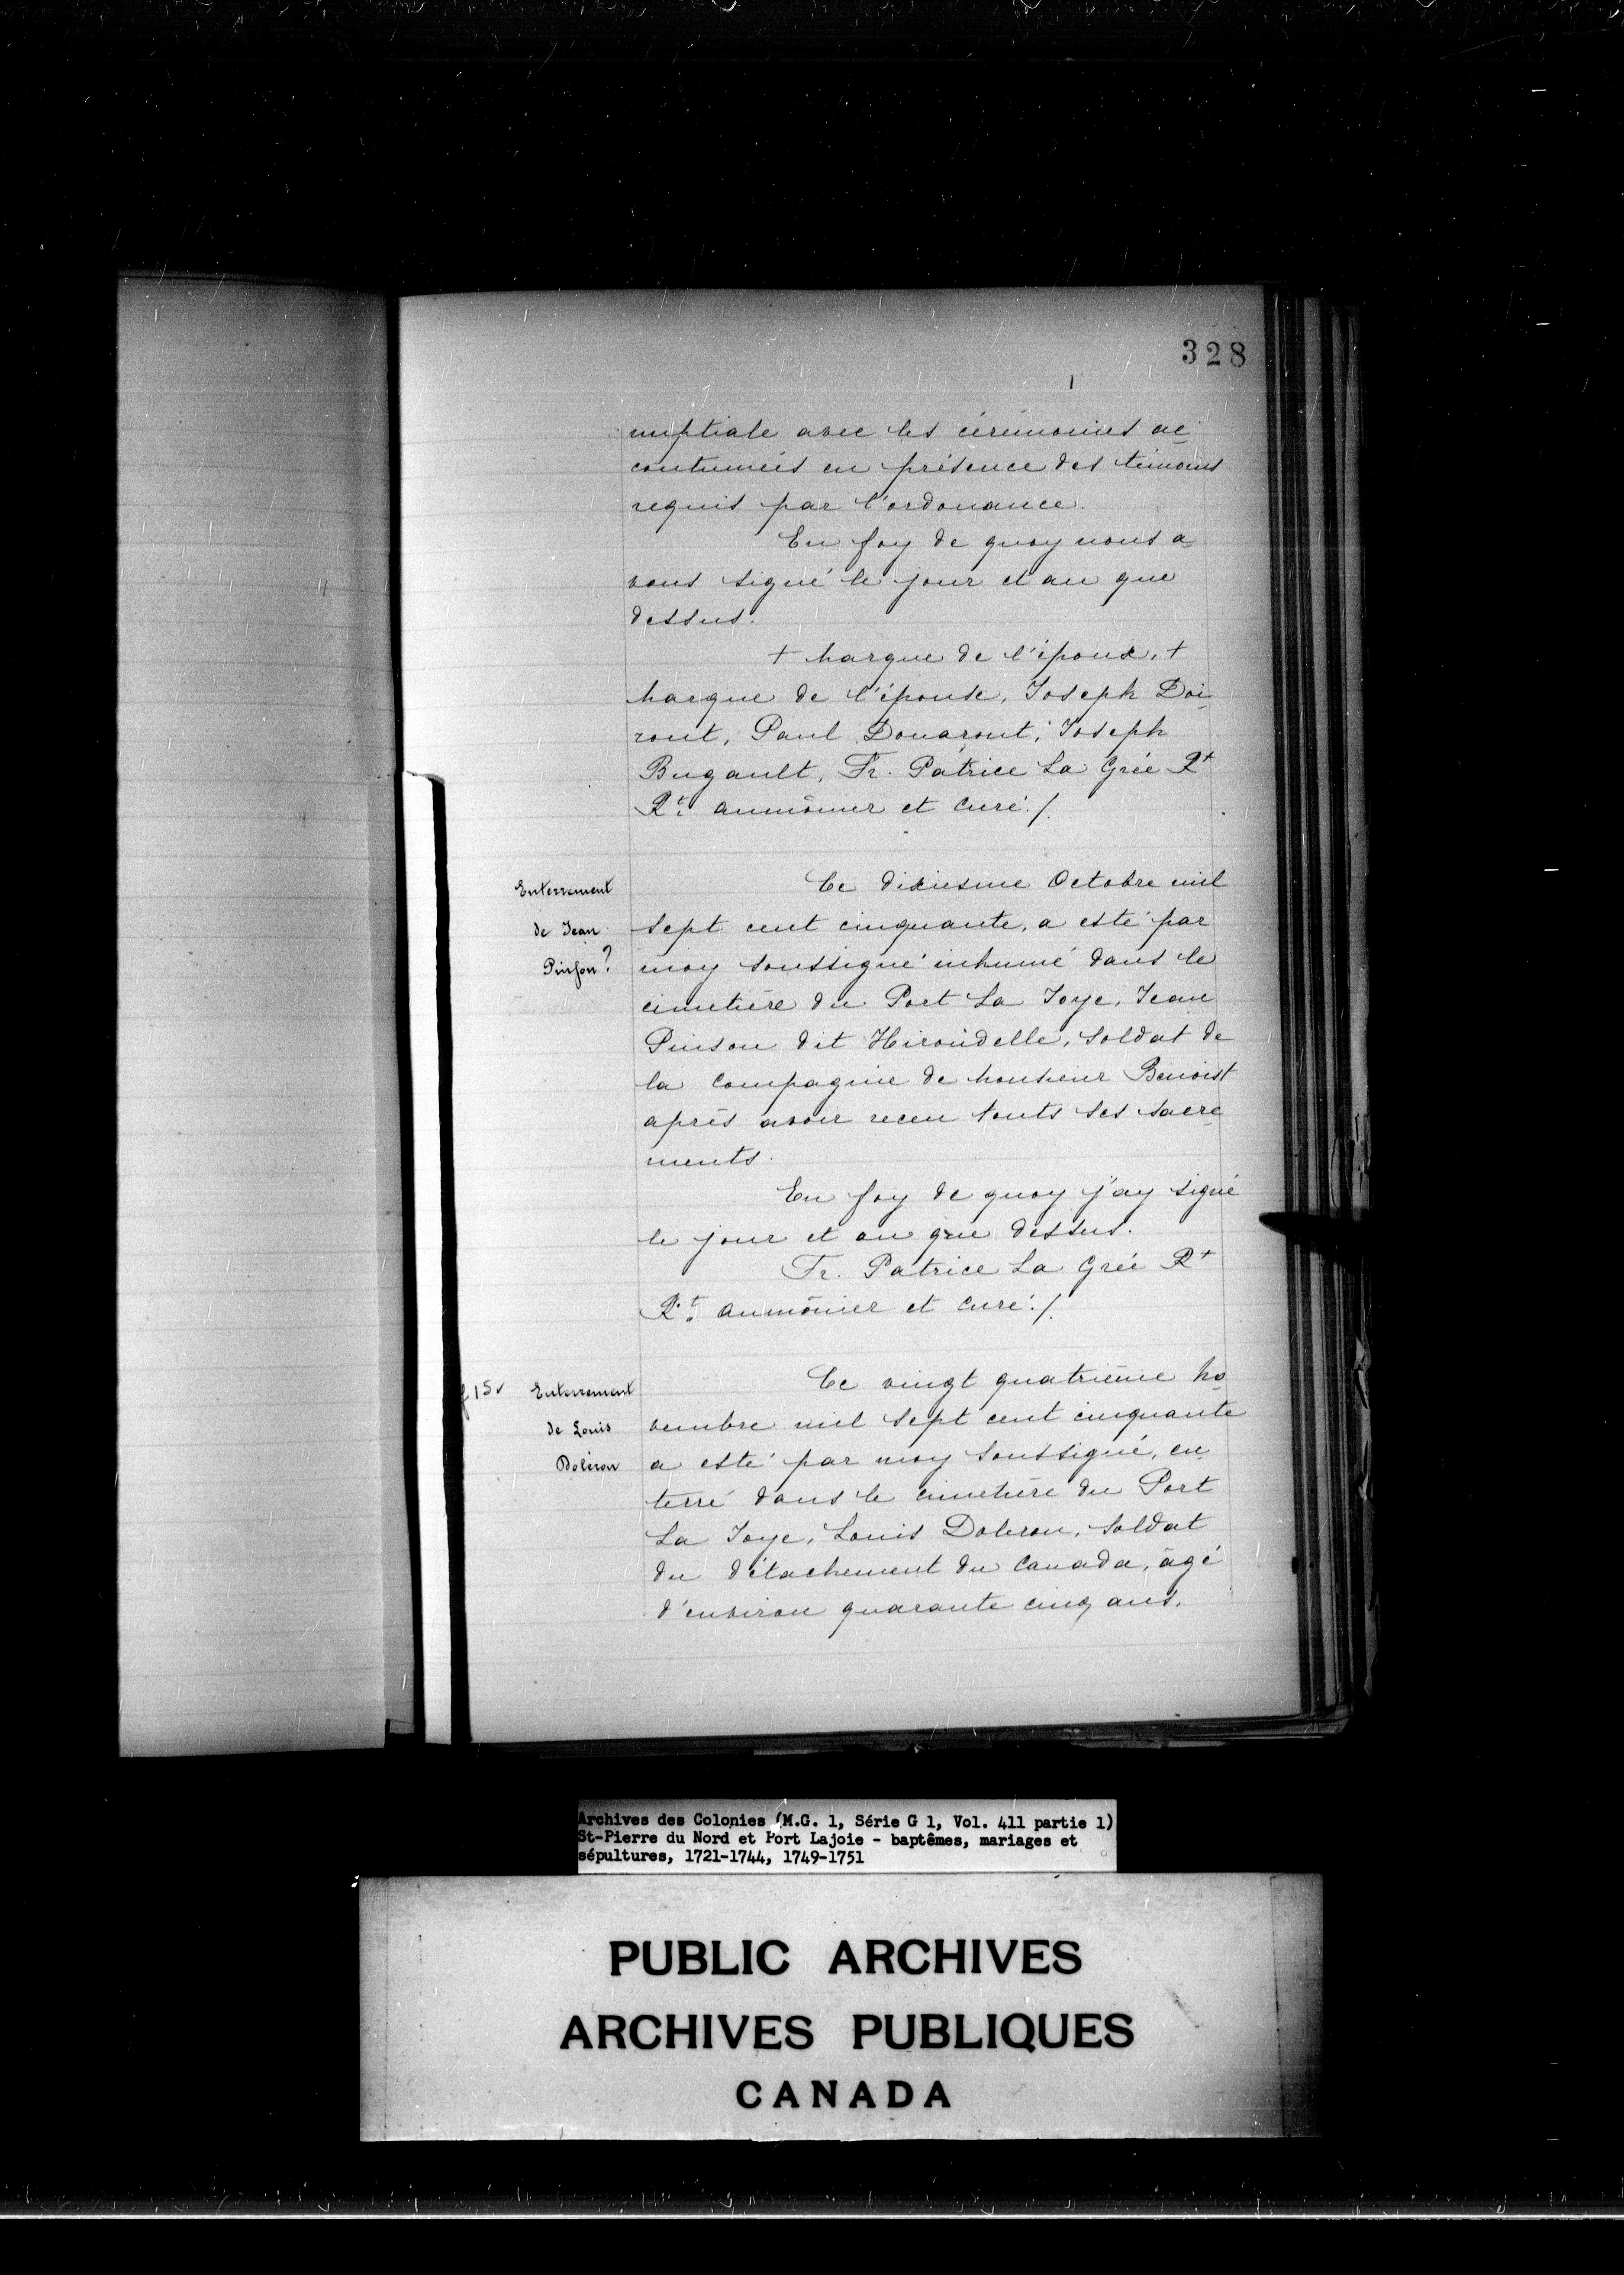 328
nuptiale avec les cérémonies ac
coutumées en présence des témoins
requis par l'ordonance.
En foy de quoy nous a
vons signé le jour et an que
dessus.
+ Marque de l'époux, +
Marque de l'épouse, Joseph Doi
ront, Paul Douaront, Joseph
Bugault, Fr. Patrice La Grée Rt
Rt. aumônier et Curé./.
Enterrement
de Jean
Pinson?
Ce dixiesme Octobre mil
sept cent cinquante, a esté par
moy soussigné inhumé dans le
cimetière du Port La Joye, Jean
Pinson dit Hirondelle, soldat de
la Compagnie de Monsieur Benoist
après avoir receu touts ses sacre
ments.
En foy de quoy j'ay signé
le jour et an que dessus.
Fr. Patrice La Grée Rt
Rt. aumônier et Curé./.
f 15v
Enterrement
de Louis
Doleron
Ce vingt quatrième No
vembre mil sept cent cinquante
a esté par moy soussigné, en
terré dans le cimetière du Port
La Joye, Louis Doleron, soldat
du détachement du Canada, âgé
d'environ quarante cinq ans.
Archives des Colonies (M.G. 1, Série G 1, Vol. 411 partie 1)
St-Pierre du Nord et Port Lajoie - baptêmes, mariages et
sépultures, 1721-1744, 1749-1751
PUBLIC ARCHIVES
ARCHIVES PUBLIQUES
CANADA